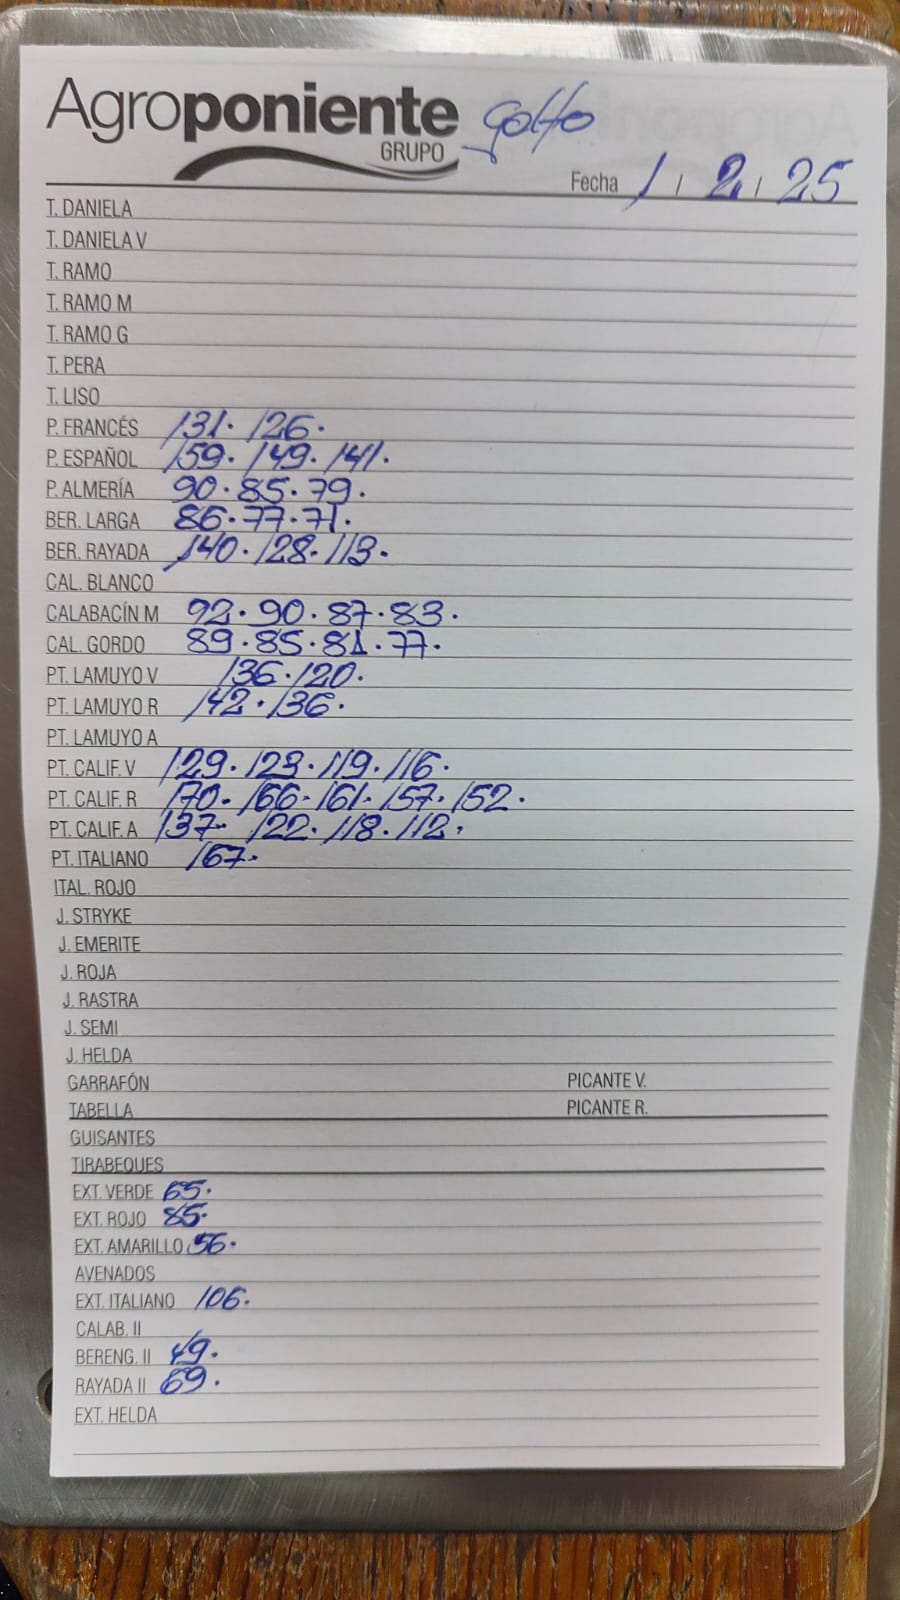 Agroponiente golfo
GRUPO
Fecha 1 / 2 / 25
T. DANIELA
T. DANIELA V
T. RAMO
T. RAMO M
T. RAMO G
T. PERA
T. LISO
P. FRANCÉS 131. 126.
P. ESPAÑOL 159. 149. 141.
P. ALMERÍA 90. 85. 79.
BER. LARGA 86. 77. 71.
BER. RAYADA 140. 128. 113.
CAL. BLANCO
CALABACÍN M 92. 90. 87. 83.
CAL. GORDO 89. 85. 81. 77.
PT. LAMUYO V 136. 120.
PT. LAMUYO R 142. 136.
PT. LAMUYO A
PT. CALIF. V 129. 123. 119. 116.
PT. CALIF. R 170. 166. 161. 157. 152.
PT. CALIF. A 137. 122. 118. 112.
PT. ITALIANO 167.
ITAL. ROJO
J. STRYKE
J. EMERITE
J. ROJA
J. RASTRA
J. SEMI
J. HELDA
GARRAFÓN PICANTE V.
TABELLA PICANTE R.
GUISANTES
TIRABEQUES
EXT. VERDE 65.
EXT. ROJO 85.
EXT. AMARILLO 56.
AVENADOS
EXT. ITALIANO 106.
CALAB. II
BERENG. II 49.
RAYADA II 69.
EXT. HELDA